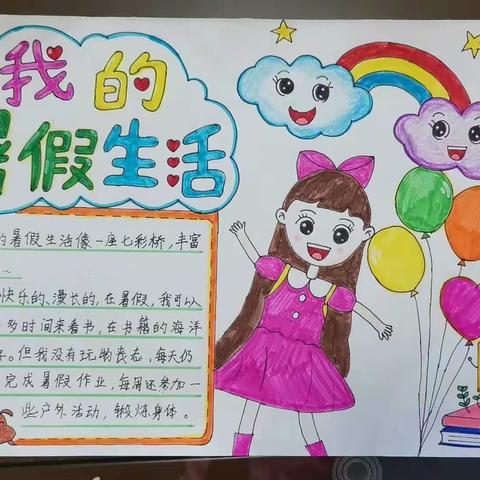 我的
暑假生活
的暑假生活像一座七彩桥，丰富
…
快乐的、漫长的，在暑假，我可以
多时间来看书，在书籍的海洋
。但我没有玩物丧志，每天仍
完成暑假作业，每周还参加一
些户外活动，锻炼身体。